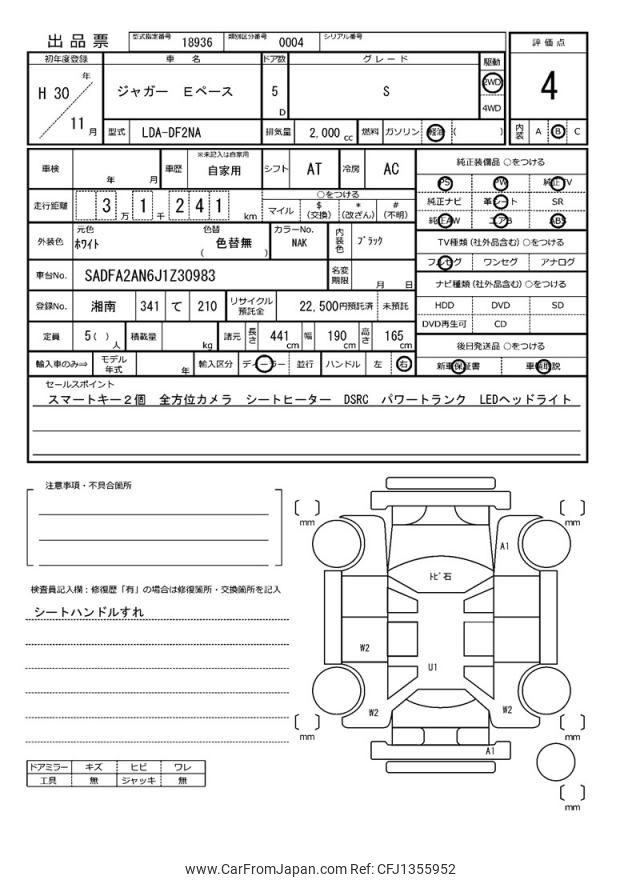 出品票 型式指定番号 18936 類別区分番号 0004 シリアル番号
初年度登録 車 名 ドア数 グレード 駆動 評価点
H 30 年 11 月
ジャガー Eペース 5 D S 2WD 4WD 4
型式 LDA-DF2NA 排気量 2,000 cc 燃料 ガソリン 軽油 ( ) 内装 A B C
車検 年 月 車歴 ※未記入は自家用 自家用 シフト AT 冷房 AC
走行距離 3 万 1 千 2 4 1 km
○をつける
マイル $ (交換) * (改ざん) # (不明)
外装色 元色 ホワイト 色替 色替無 ( ) カラーNo. NAK 内装色 ブラック
車台No. SADFA2AN6J1Z30983 名変期限 月 日
登録No. 湘南 341 て 210 リサイクル預託金 22,500円預託済 未預託
定員 5( ) 人 積載量 kg 諸元 長さ 441 cm 幅 190 cm 高さ 165 cm
輸入車のみ⇒ モデル年式 年 輸入区分 ディーラー 並行 ハンドル 左 右
純正装備品 ○をつける
PS PW 純正TV
純正ナビ 革シート SR
純正AW エアB ABS
TV種類 (社外品含む) ○をつける
フルセグ ワンセグ アナログ
ナビ種類 (社外品含む) ○をつける
HDD DVD SD
DVD再生可 CD
後日発送品 ○をつける
新車保証書 車輌取説
セールスポイント
スマートキー2個 全方位カメラ シートヒーター DSRC パワートランク LEDヘッドライト
注意事項・不具合箇所
検査員記入欄:修復歴「有」の場合は修復箇所・交換箇所を記入
シートハンドルすれ
ドアミラー キズ ヒビ ワレ
工具 無 ジャッキ 無
mm mm
A1
トビ石
W2
U1
W2 W2
mm mm
A1
mm
www.CarFromJapan.com Ref: CFJ1355952